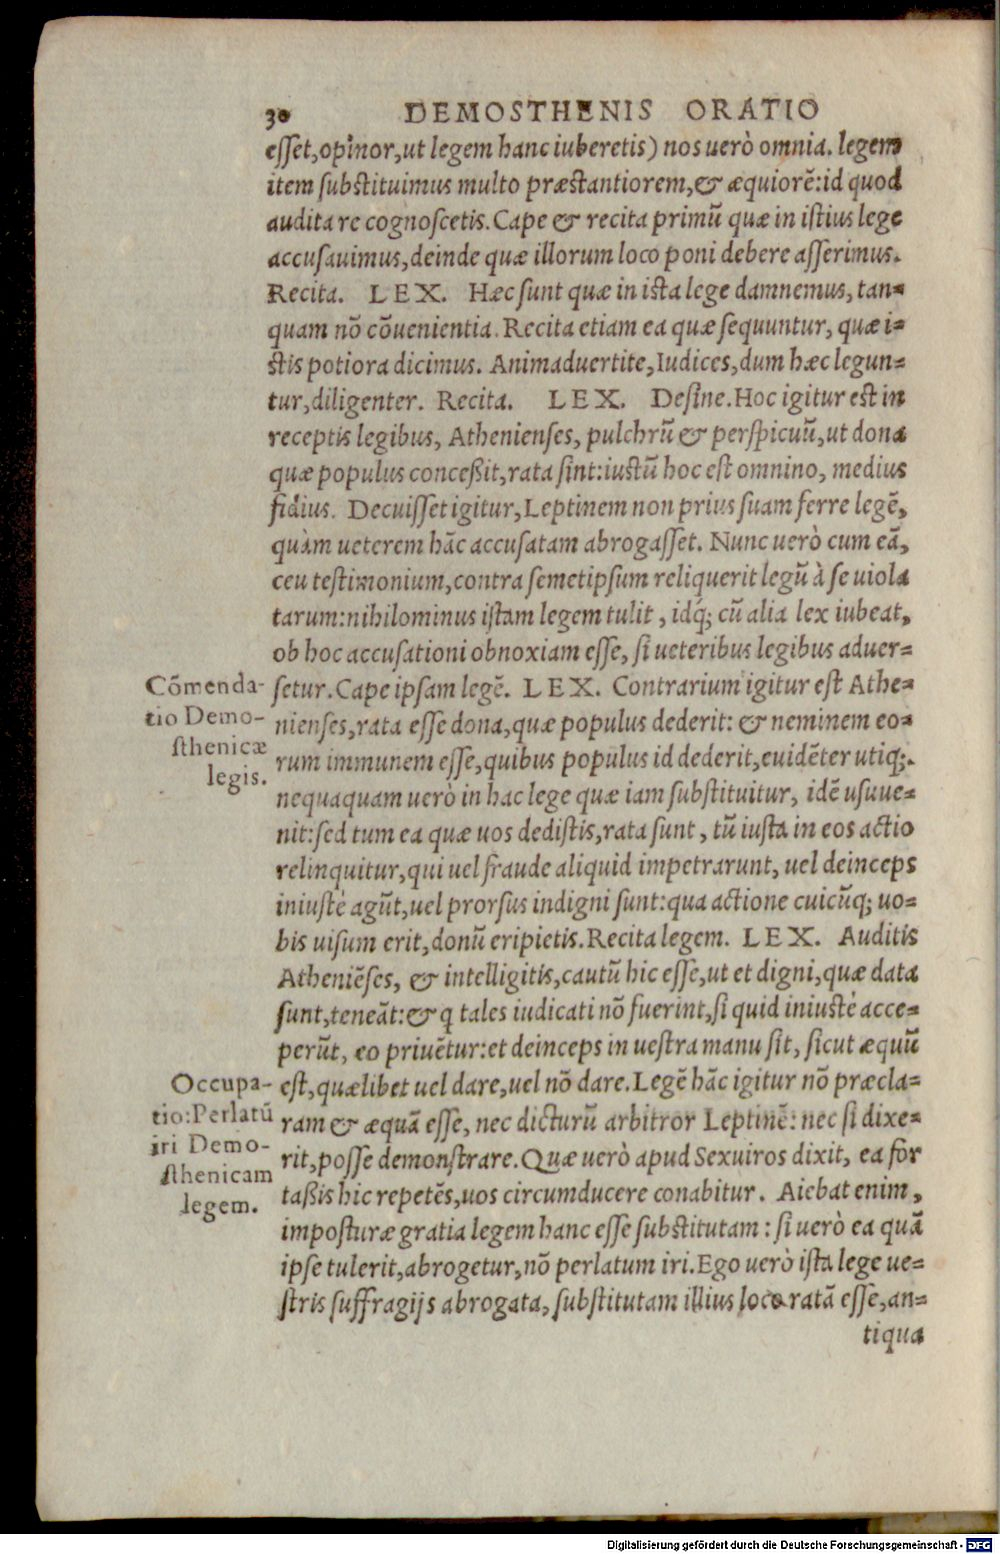 30 DEMOSTHENIS ORATIO
esset, opinor, ut legem hanc iuberetis) nos uerò omnia. legem
item substituimus multo præstantiorem, & æquiorē: id quod
audita re cognoscetis. Cape & recita primū quæ in istius lege
accusauimus, deinde quæ illorum loco poni debere asserimus.
Recita. LEX. Hæc sunt quæ in ista lege damnemus, tan-
quam nō cōuenientia. Recita etiam ea quæ sequuntur, quæ i-
stis potiora dicimus. Animaduertite, Iudices, dum hæc legun-
tur, diligenter. Recita. LEX. Desine. Hoc igitur est in
receptis legibus, Athenienses, pulchrū & perspicuū, ut dona
quæ populus conceßit, rata sint: iustū hoc est omnino, medius
fidius. Decuisset igitur, Leptinem non prius suam ferre legē,
quàm ueterem hāc accusatam abrogasset. Nunc uerò cum eā,
ceu testimonium, contra semetipsum reliquerit legū à se uiola
tarum: nihilominus istam legem tulit, idq; cū alia lex iubeat,
ob hoc accusationi obnoxiam esse, si ueteribus legibus aduer-
setur. Cape ipsam legē. LEX. Contrarium igitur est Athe-
nienses, rata esse dona, quæ populus dederit: & neminem eo-
rum immunem esse, quibus populus id dederit, euidēter utiq;.
nequaquam uerò in hac lege quæ iam substituitur, idē usuue-
nit: sed tum ea quæ uos dedistis, rata sunt, tū iusta in eos actio
relinquitur, qui uel fraude aliquid impetrarunt, uel deinceps
iniustè agūt, uel prorsus indigni sunt: qua actione cuicūq; uo-
bis uisum erit, donū eripietis. Recita legem. LEX. Auditis
Atheniēses, & intelligitis, cautū hic esse, ut et digni, quæ data
sunt, teneāt: & q tales iudicati nō fuerint, si quid iniustè acce-
perūt, eo priuētur: et deinceps in uestra manu sit, sicut æquū
est, quælibet uel dare, uel nō dare. Legē hāc igitur nō præcla-
ram & æquā esse, nec dicturū arbitror Leptinē: nec si dixe-
rit, posse demonstrare. Quæ uerò apud Sexuiros dixit, ea for
taßis hic repetēs, uos circumducere conabitur. Aiebat enim,
imposturæ gratia legem hanc esse substitutam: si uerò ea quā
ipse tulerit, abrogetur, nō perlatum iri. Ego uerò ista lege ue-
stris suffragijs abrogata, substitutam illius loco ratā esse, an-
tiqua
Cōmenda-
tio Demo-
sthenicæ
legis.
Occupa-
tio: Perlatū
iri Demo-
sthenicam
legem.
Digitalisierung gefördert durch die Deutsche Forschungsgemeinschaft - DFG